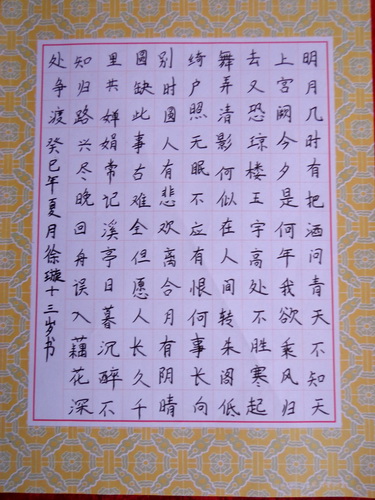 明月几时有把酒问青天不知天
上宫阙今夕是何年我欲乘风归
去又恐琼楼玉宇高处不胜寒起
舞弄清影何似在人间转朱阁低
绮户照无眠不应有恨何事长向
别时圆人有悲欢离合月有阴晴
圆缺此事古难全但愿人长久千
里共婵娟常记溪亭日暮沉醉不
知归路兴尽晚回舟误入藕花深
处争渡 癸巳年夏月徐璇十三岁书